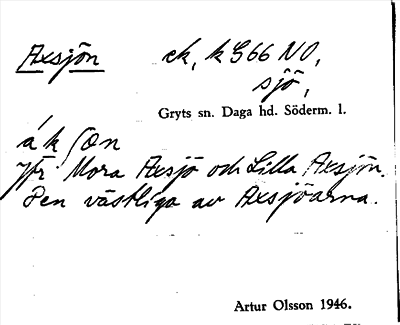 Axsjön ek, k G66 NO,
sjö,
Gryts sn. Daga hd. Söderm. l.
á k ʃön
Jfr Mora Axsjö och Lilla Axsjön.
Den västliga av Axsjöarna.
Artur Olsson 1946.